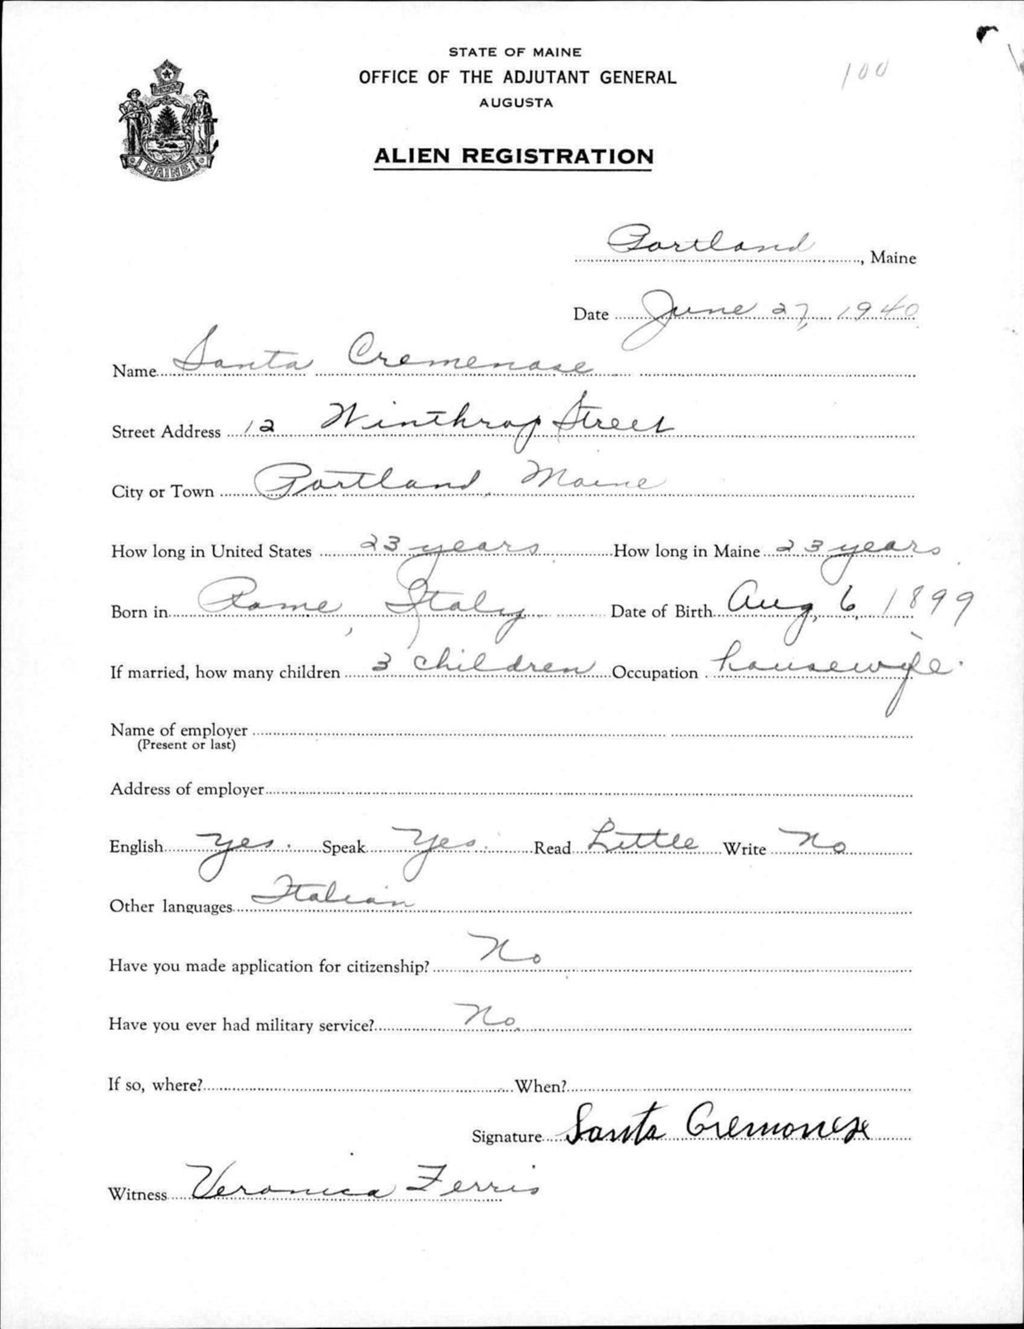 STATE OF MAINE
OFFICE OF THE ADJUTANT GENERAL
AUGUSTA
100
ALIEN REGISTRATION
MAINE
Portland, Maine
Date June 27, 1940
Name Santa Cremenase
Street Address 12 Winthrop Street
City or Town Portland, Maine
How long in United States 23 years How long in Maine 23 years
Born in Rome, Italy Date of Birth Aug, 6, 1899
If married, how many children 3 children Occupation housewife.
Name of employer
(Present or last)
Address of employer
English Yes. Speak Yes. Read Little Write No
Other languages Italian
Have you made application for citizenship? No
Have you ever had military service? No
If so, where? When?
Signature Santa Cremonese
Witness Veronica Ferris